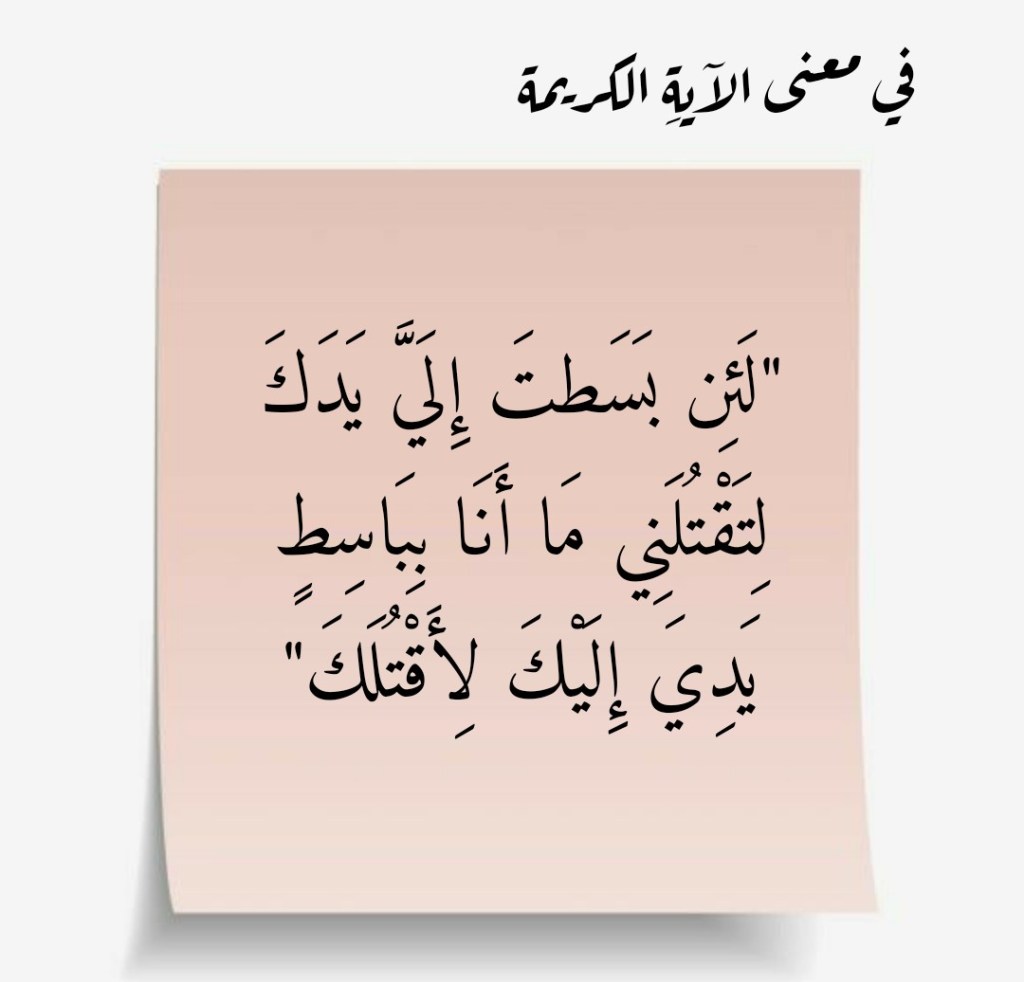 في معنى الآيةِ الكريمة
"لَئِن بَسَطتَ إِلَيَّ يَدَكَ
لِتَقْتُلَنِي مَا أَنَا بِبَاسِطٍ
يَدِيَ إِلَيْكَ لِأَقْتُلَكَ"